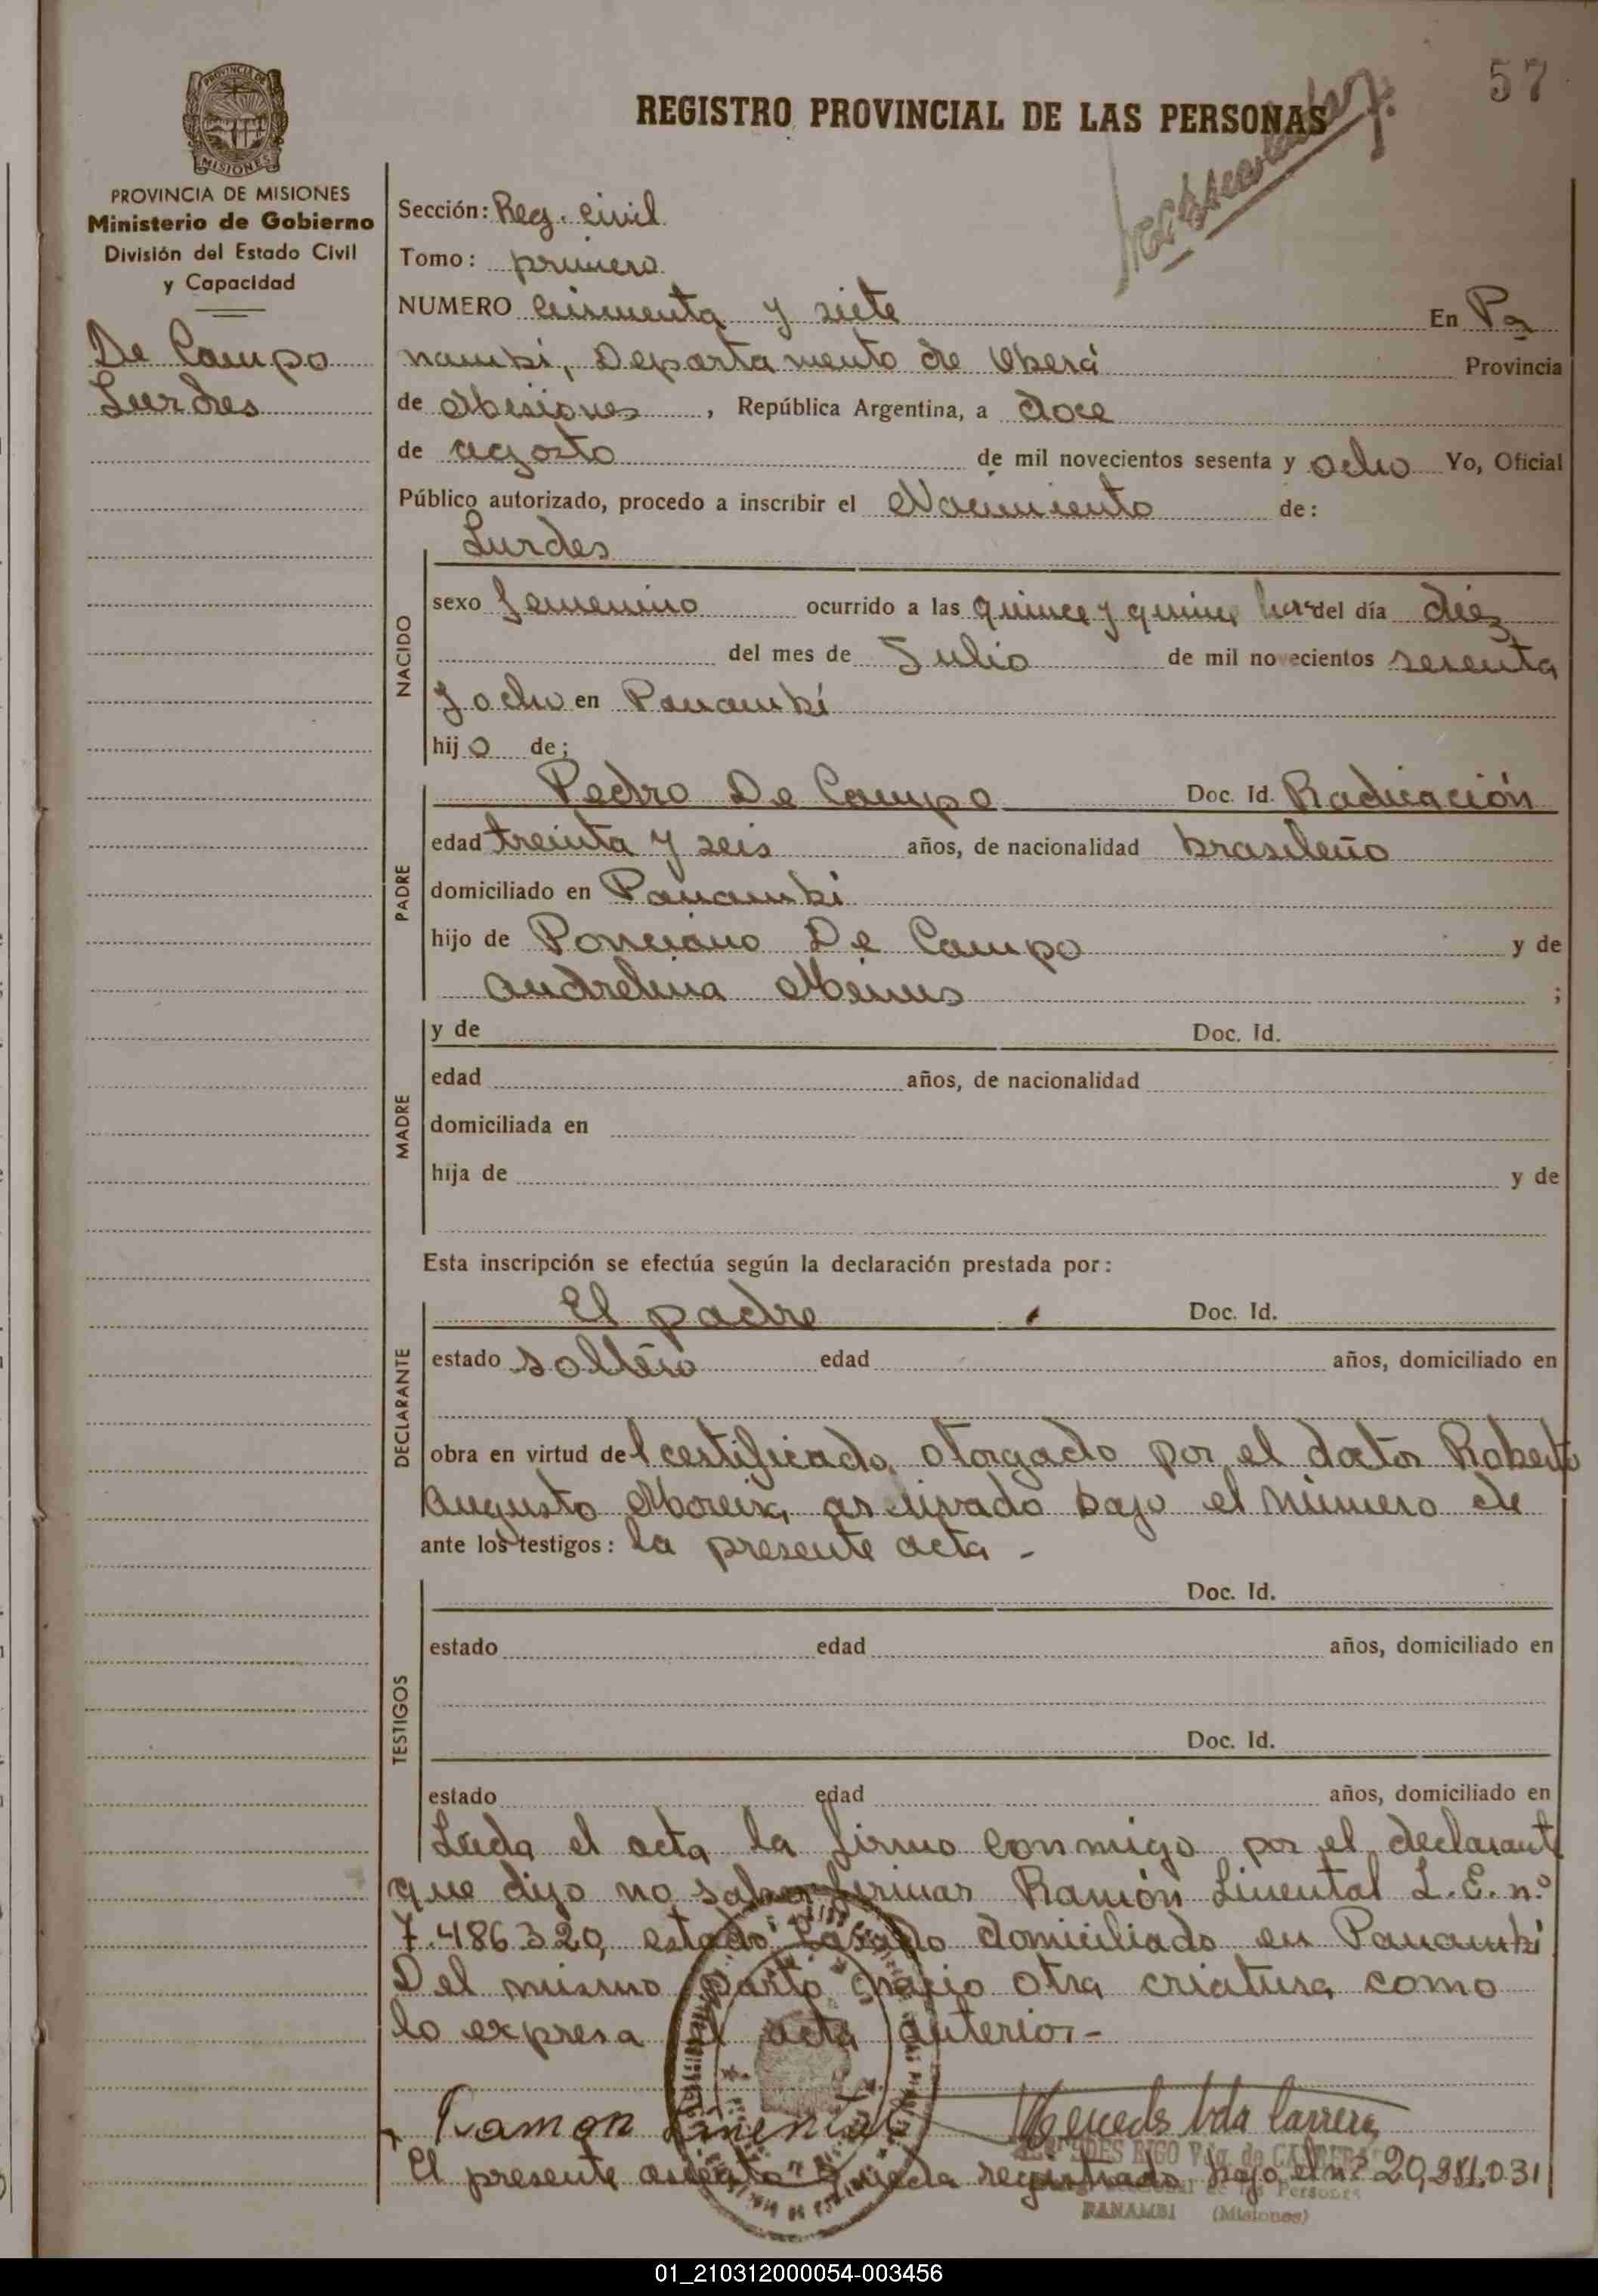 57
REGISTRO PROVINCIAL DE LAS PERSONAS
PROVINCIA DE
MISIONES
PROVINCIA DE MISIONES
Ministerio de Gobierno
División del Estado Civil
y Capacidad
De Campo
Lurdes
Sección: Reg. Civil
Tomo: primero
NUMERO Cincuenta y siete En Pa
nambí, Departamento de Oberá Provincia
de Misiones, República Argentina, a doce
de agosto de mil novecientos sesenta y ocho Yo, Oficial
Público autorizado, procedo a inscribir el Nacimiento de:
Lurdes
NACIDO
sexo femenino ocurrido a las quince y quince hs del día diez
del mes de Julio de mil novecientos sesenta
y ocho en Panambí
hijo de:
PADRE
Pedro De Campo Doc. Id. Radicación
edad treinta y seis años, de nacionalidad brasileño
domiciliado en Panambí
hijo de Ponciano De Campo y de
Andrelina ;
MADRE
y de Doc. Id.
edad años, de nacionalidad
domiciliada en
hija de y de
Esta inscripción se efectúa según la declaración prestada por:
DECLARANTE
El padre Doc. Id.
estado soltero edad años, domiciliado en
obra en virtud del certificado otorgado por el doctor Roberto
Augusto archivado bajo el número de
ante los testigos: la presente acta -
TESTIGOS
Doc. Id.
estado edad años, domiciliado en
Doc. Id.
estado edad años, domiciliado en
Leída el acta la firmo conmigo por el declarante
que dijo no saber firmar Ramón Limental L.E. nº
7.486.320, estado casado domiciliado en Panambí
Del mismo parto nacio otra criatura como
lo expresa el acta anterior-
Ramon Limental Mercedes Vda Carrera
El presente asiento queda registrado bajo el nº 20,981.031
PANAMBI (Misiones)
01_210312000054-003456